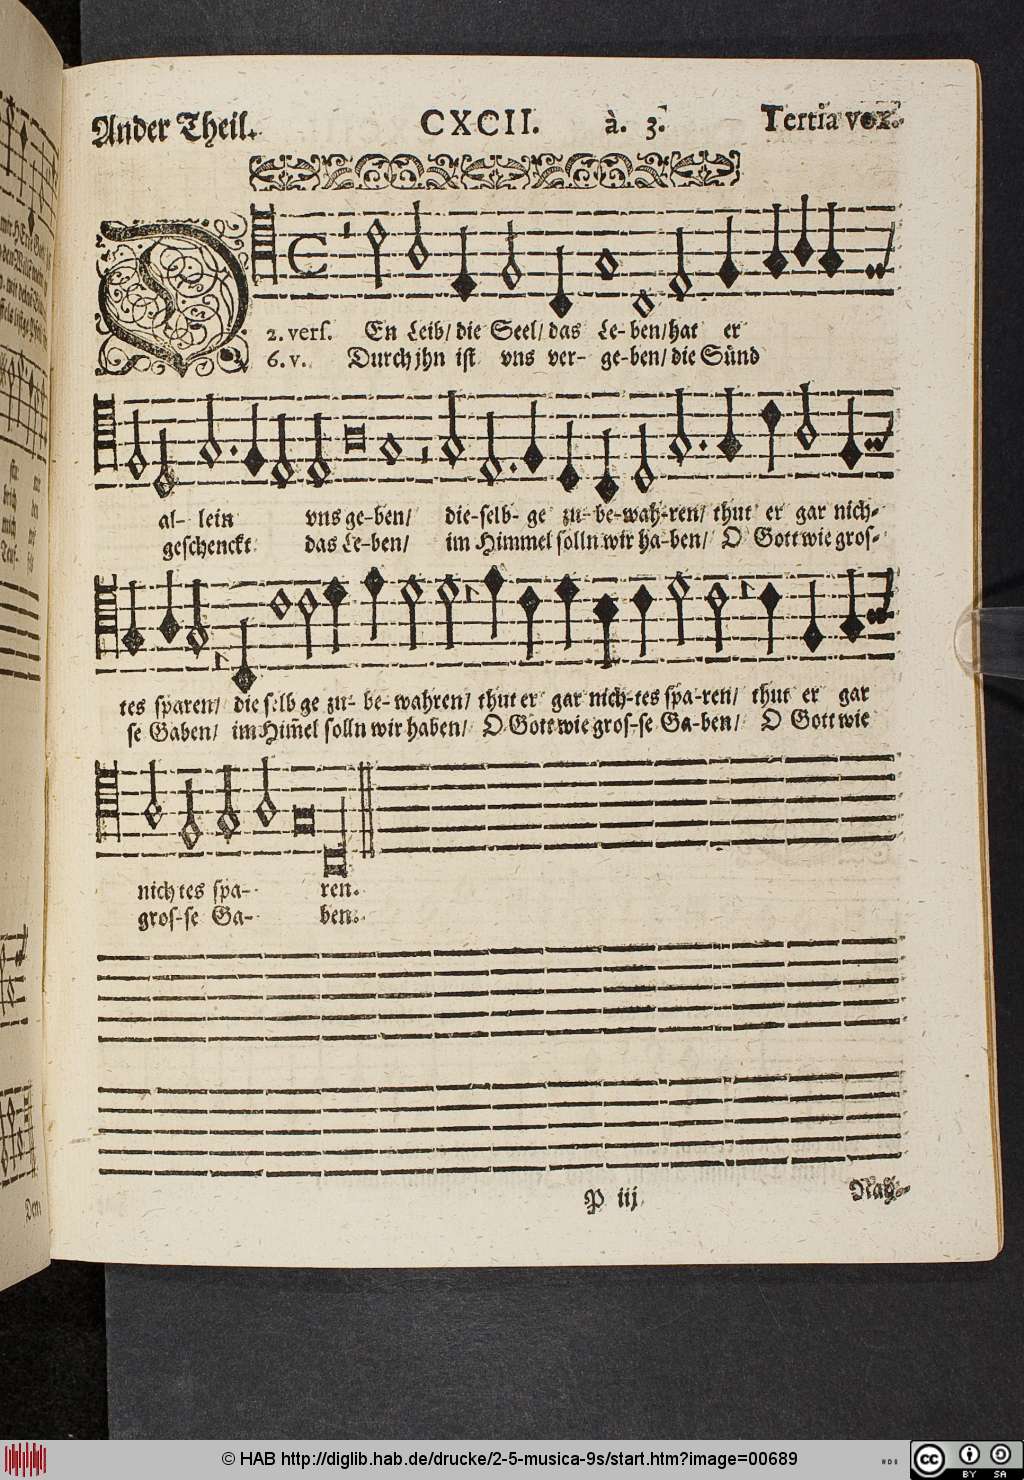 Ander Theil. CXCII. à. 3. Tertia vox.
2. vers. En Leib/ die Seel/ das Le- ben/ hat er
6. v. Durch jhn ist vns ver- ge-ben/ die Sünd
al- lein vns ge-ben/ die-selb- ge zu-be-wah-ren/ thut er gar nich-
geschenckt das Le-ben/ im Himmel solln wir ha-ben/ O Gott wie gros-
tes sparen/ die selb ge zu- be-wahren/ thut er gar nich-tes spa-ren/ thut er gar
se Gaben/ im Him̄el solln wir haben/ O Gott wie gros-se Ga-ben/ O Gott wie
nich tes spa- ren.
gros-se Ga- ben.
P iij
© HAB http://diglib.hab.de/drucke/2-5-musica-9s/start.htm?image=00689
HAB
cc BY SA